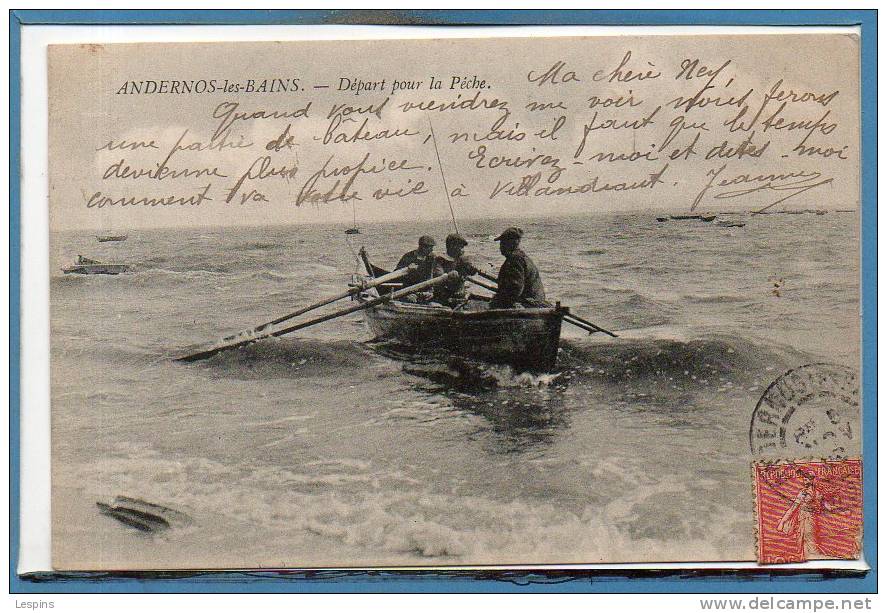 ANDERNOS-les-BAINS. — Départ pour la Pêche.
Ma chère Ney,
Quand vous viendrez me voir nous ferons
une partie de bâteau, mais il faut que le temps
devienne plus propice. Ecrivez-moi et detes-moi
comment va votre vie à Villandraut. Jeanne
REPUBLIQUE FRANÇAISE
Lespins
www.delcampe.net